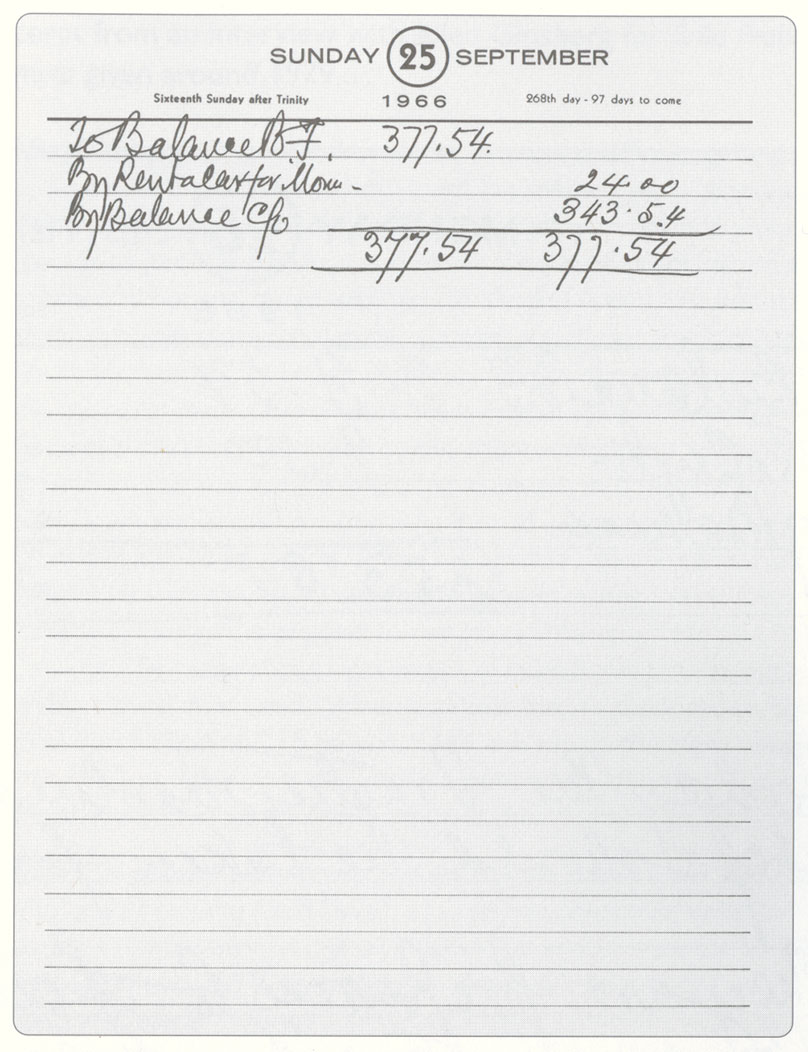 SUNDAY 25 SEPTEMBER
Sixteenth Sunday after Trinity 1966 268th day - 97 days to come
To Balance B.F. 377.54.
By Rentalcar for 24.00
By Balance c/o 343.5.4
377.54 377.54